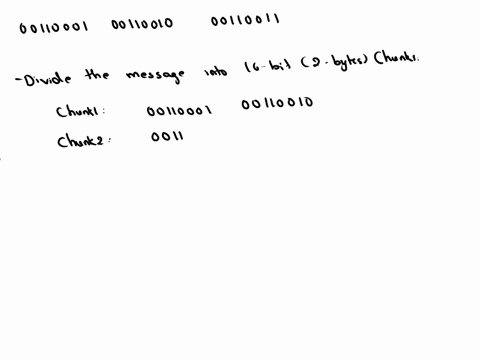 00110001 00110010 00110011
- Divide the message into 16-bit (2-bytes) Chunks.
Chunk1: 00110001 00110010
Chunk2: 0011